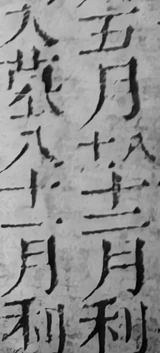 五月十八十二月利
八十一月利